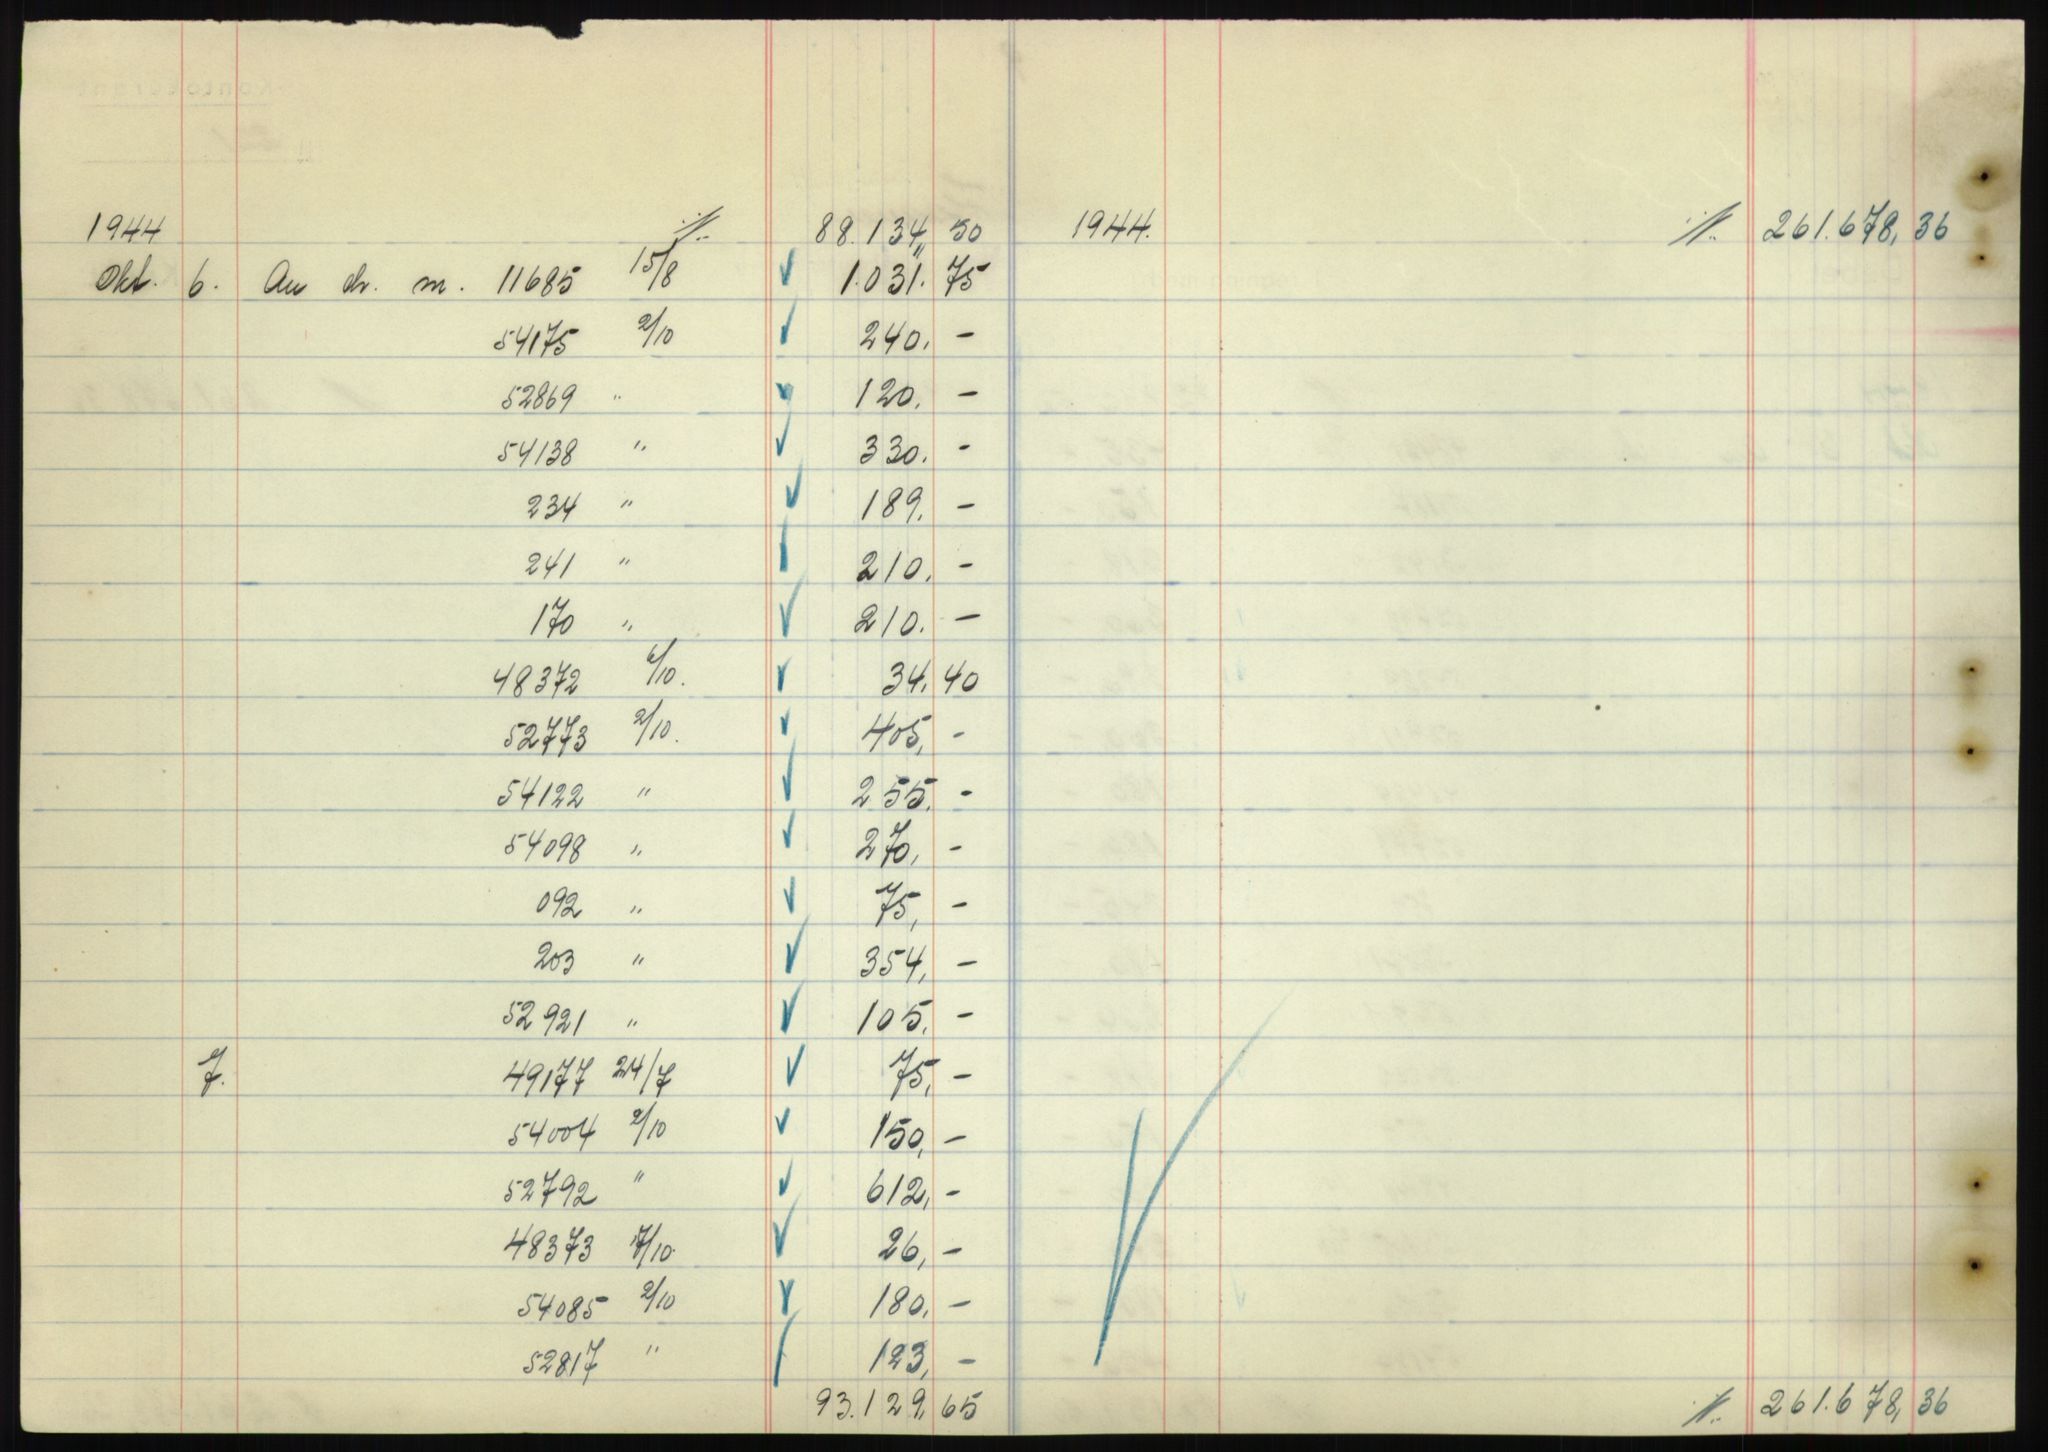 1944 ·/. 88.134,50 1944. ·/. 261.678,36
Okt. 6. An dr. m. 11685 15/8 1.031.75
54175 2/10 240.-
52869 " 120.-
54138 " 330.-
234 " 189.-
241 " 210.-
170 " 210.-
48372 6/10. 34,40
52773 2/10. 405,-
54122 " 255.-
54098 " 270,-
092 " 75,-
203 " 354,-
52921 " 105.-
7. 49177 24/7 75,-
54004 2/10 150,-
52792 " 612,-
48373 7/10. 26,-
54085 2/10 180,-
52817 " 123,-
93.129,65 ·/. 261.678,36